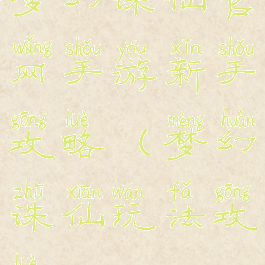 梦幻诛仙官
wǎng shǒu yóu xīn shǒu
网手游新手
gōng lüè mèng huàn
攻略（梦幻
zhū xiān wán fǎ gōng
诛仙玩法攻
lüè